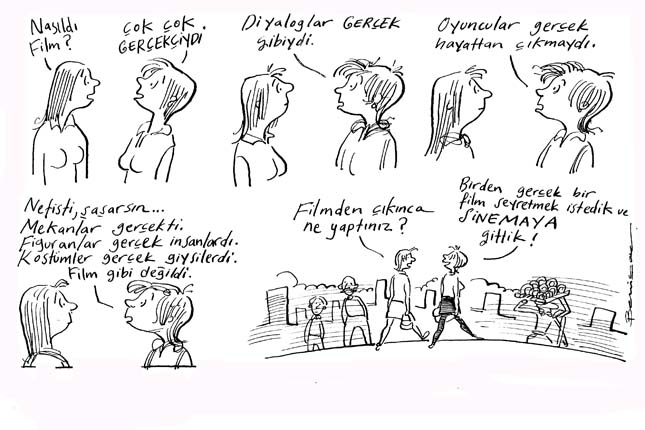 Nasıldı
Film?
ÇOK ÇOK
GERÇEKÇİYDİ.
Diyaloglar GERÇEK
gibiydi.
Oyuncular gerçek
hayattan çıkmaydı.
Nefisti, şaşarsın...
Mekanlar gerçekti.
Figüranlar gerçek insanlardı.
Kostümler gerçek giysilerdi.
Film gibi değildi.
Filmden çıkınca
ne yaptınız?
Birden gerçek bir
film seyretmek istedik ve
SİNEMAYA
gittik!